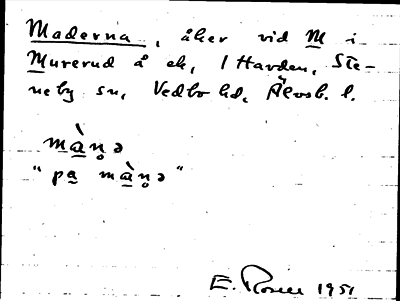 Maderna, åker vid M i
Murerud å ek, 1 Havden, Ste-
neby sn, Vedbo hd, Älvsb. l.
màṇə
"pa màṇə"
E. Rosell 1951